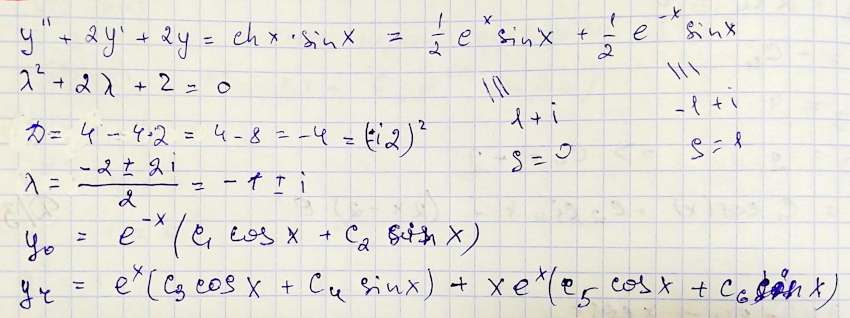 y'' + 2y' + 2y = ch x · sin x = 1/2 e^x sin x + 1/2 e^-x sin x
λ² + 2λ + 2 = 0
||| |||
1 + i -1 + i
D = 4 - 4·2 = 4 - 8 = -4 = (±i2)²
s = 0 s = 1
λ = (-2 ± 2i)/2 = -1 ± i
y₀ = e^-x (C₁ cos x + C₂ sin x)
yᵣ = e^x (C₃ cos x + C₄ sin x) + x e^x (C₅ cos x + C₆ sin x)